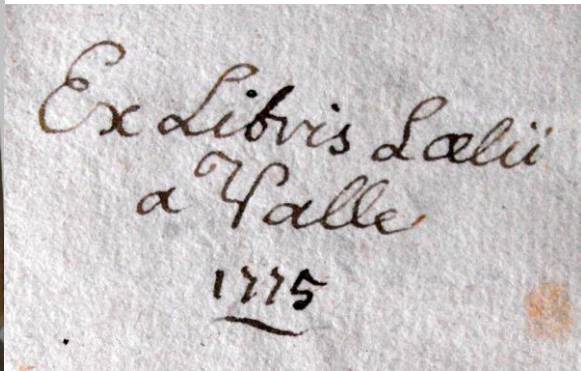 Ex Libris Lælii
a Valle
1775